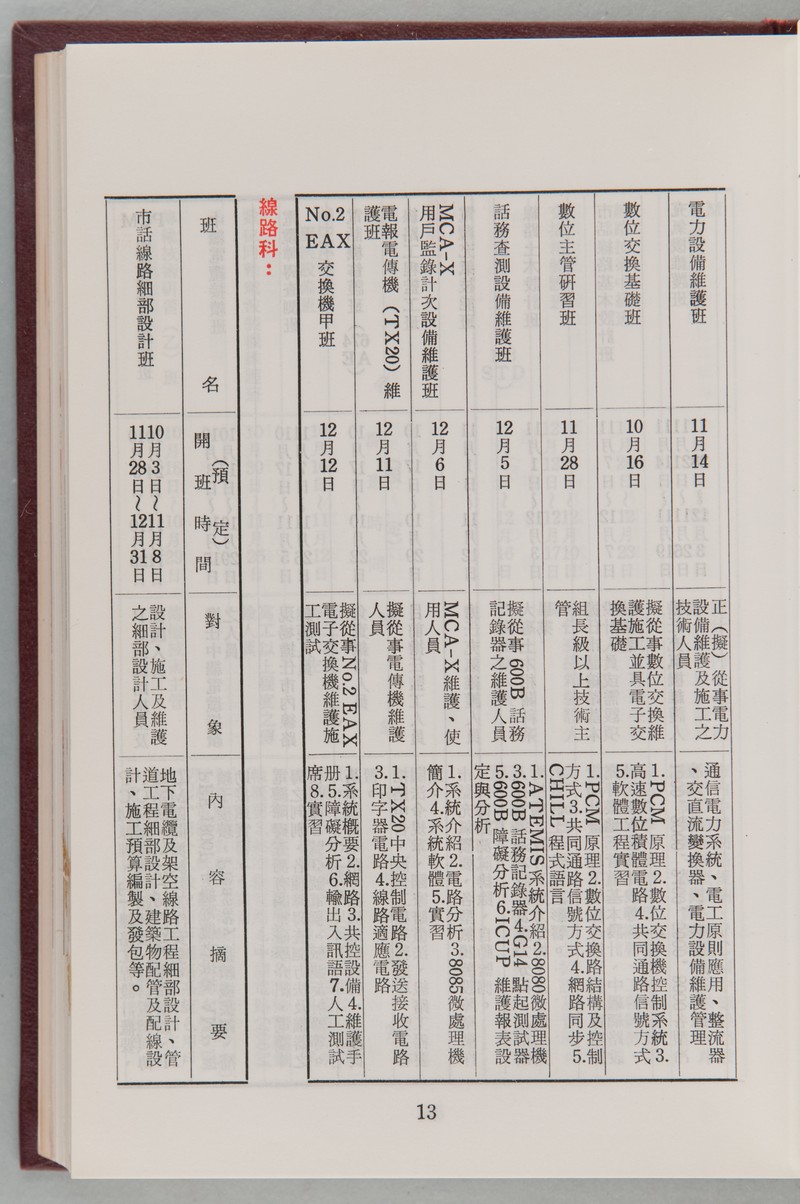 電力設備維護班
11月14日
正（擬）從事電力
設備維護及施工之
技術人員
通信電力系統、電工原則應用、整流器
、交直流變換器、電力設備維護管理
數位交換基礎班
10月16日
擬從事數位交換維
護施工並具電子交
換基礎
1.PCM 原理2.數位交換機控制系統3.
高速數位積體電路4.共同通路信號方式
5.軟體工程實習
數位主管研習班
11月28日
組長級以上技術主
管
1.PCM 原理2.數位交換路結構及控制
方式3.共同通路信號方式4.網路同步5.
CHILL 程式語言
話務查測設備維護班
12月5日
擬從事 600B 話務
記錄器之維護人員
1.ATEMIS系統介紹2.8080微處理機
3.600B 話務記錄器4.G14 點起測試器
5.600B 障礙分析6.1CUP 維護報表設
定與分析
MCA-X
用戶監錄計次設備維護班
12月6日
MCA-X維護、使
用人員
1.系統介紹2.電路分析3.8085微處理機
簡介4.系統軟體5.實習
電報電傳機（TX20）維
護班
12月11日
擬從事電傳機維護
人員
1.TX20中央控制電路2.發送接收電路
3.印字器電路4.線路適應電路
No.2
EAX
交換機甲班
12月12日
擬從事No.2 EAX
電子交換機維護施
工測試
1.系統概要2.網路3.共控設備4.維護手
册5.障礙分析6.輸出入訊語7.人工測試
席8.實習
線路科：
班名
（預定）
開班時間
對象
內容摘要
市話線路細部設計班
10月3日～11月8日
11月28日～12月31日
設計、施工及維護
之細部設計人員
地下電纜及架空線路工程細部設計、管
道工程細部設計、建築物配管及配線設
計、施工預算編製及發包等。
13